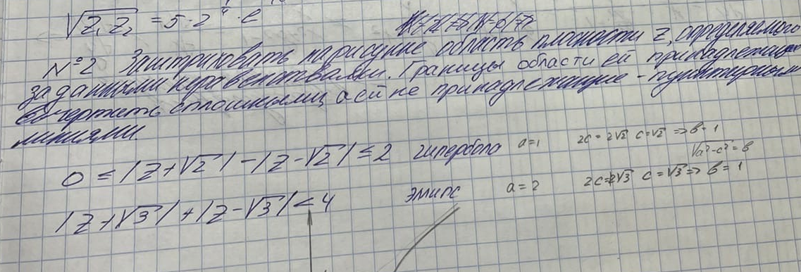 √Z₁Z₂ = 5·2 · e
№2 Заштриховать на рисунке область плоскости z, определяемого
заданными неравенствами. Границы области ей принадлежащие
вычертить сплошными, а ей не принадлежащие - пунктирными
линиями.
0 ≤ |z+√2| - |z-√2| ≤ 2 гипербола a=1 2c=2√2 c=√2 => b=1
√a²-c² = b
|z+√3| + |z-√3| < 4 эллипс a=2 2c=2√3 c=√3 => b=1